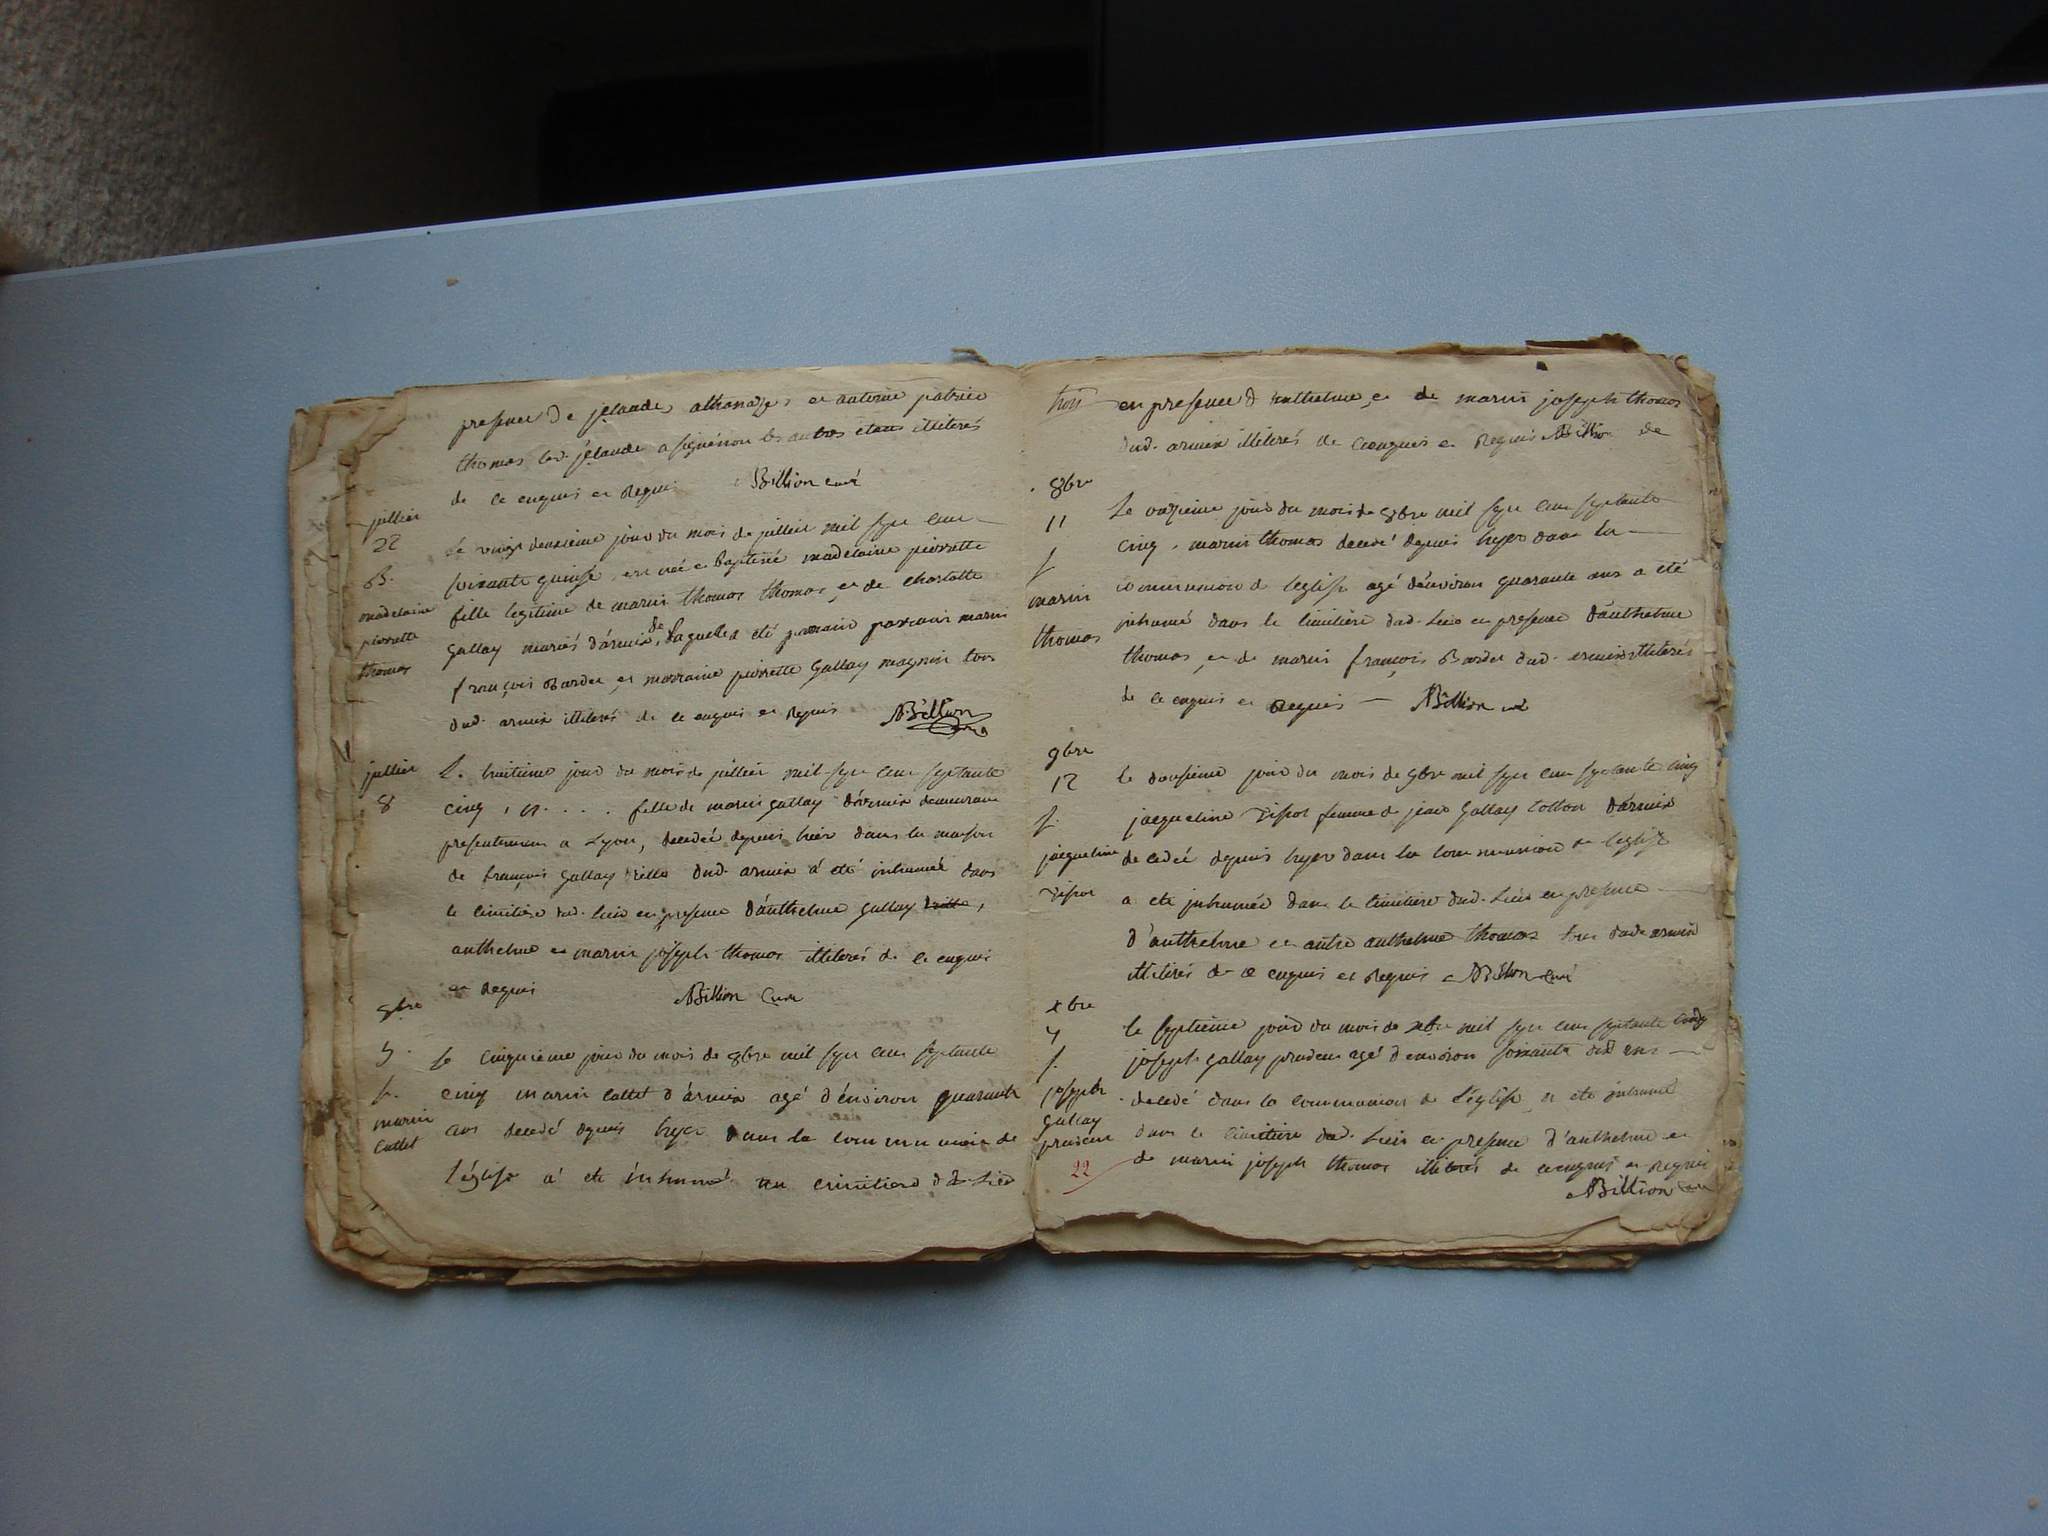 presence de jelaude athanaze et antoine patrice
thomas led. jelaude a signé non les autres etans illiterés
de ce enquis et Requis Billion curé
juillier
22
B.
madelaine
pierrette
thomas
Le vingt deuxieme jour du mois de juillier mil sept cent
soixante quinse, est née et Baptisé madelaine pierrette
fille legitime de marin thomas thomas, et de charlotte
gallay mariés d'armix, de laquelle a été parrain marin
françois Bardet et marraine pierrette Gallay magnin tous
dud. armix illiterés de ce enquis et Requis Billion
juillier
8
Le huitieme jour du mois de juillier mil sept cent septante
cinq, n . . . . fille de marin gallay d'armix demeurant
presentement a Lyon, decedée depuis hier dans la maison
de françois gallay dud. armix a été inhumée dans
le cimitière dud. lieu en presence d'anthelme gallay,
anthelme et marin joseph thomas illiterés de ce enquis
et Requis Billion Curé
8bre
5.
f.
marin
Cattet
Le cinquieme jour du mois de 8bre mil sept cent septante
cinq marin cattet d'armix agé d'environ quarante
ans decedé depuis hyer dans la communion de
l'église a été inhumé au cimitiere dud. Lieu
en presence d'anthelme, et de marin joseph thomas
dud. armix illiterés de ce enquis et Requis Billion
8bre
11
f
marin
thomas
Le onzieme jour du mois de 8bre mil sept cent septante
cinq, marin thomas decedé depuis hyer dans la
communion de l'eglise agé d'environ quarante ans a été
inhumé dans le cimitière dud. Lieu en presence d'anthelme
thomas, et de marin françois Bardet dud. armix illiterés
de ce enquis et Requis Billion curé
9bre
12
f.
jacqueline
Tissot
le dousieme jour du mois de 9bre mil sept cent septante cinq
jacqueline Tissot femme de jean Gallay Colton d'armix
decedée depuis hyer dans la communion de l'eglise
a eté inhumée dans le cimitiere dud. Lieu en presence
d'anthelme et autre anthelme thomas tous dud. armix
illiterés de ce enquis et Requis Billion curé
xbre
7
f.
joseph
gallay
prudent
22
le septieme jour du mois de xbre mil sept cent septante cinq
joseph gallay prudent agé d'environ soixante dix ans
decedé dans la communion de l'église, a eté inhumé
dans le cimitière dud. Lieu en presence d'anthelme et
de marin joseph thomas illiterés de ce enquis et Requis
Billion Curé